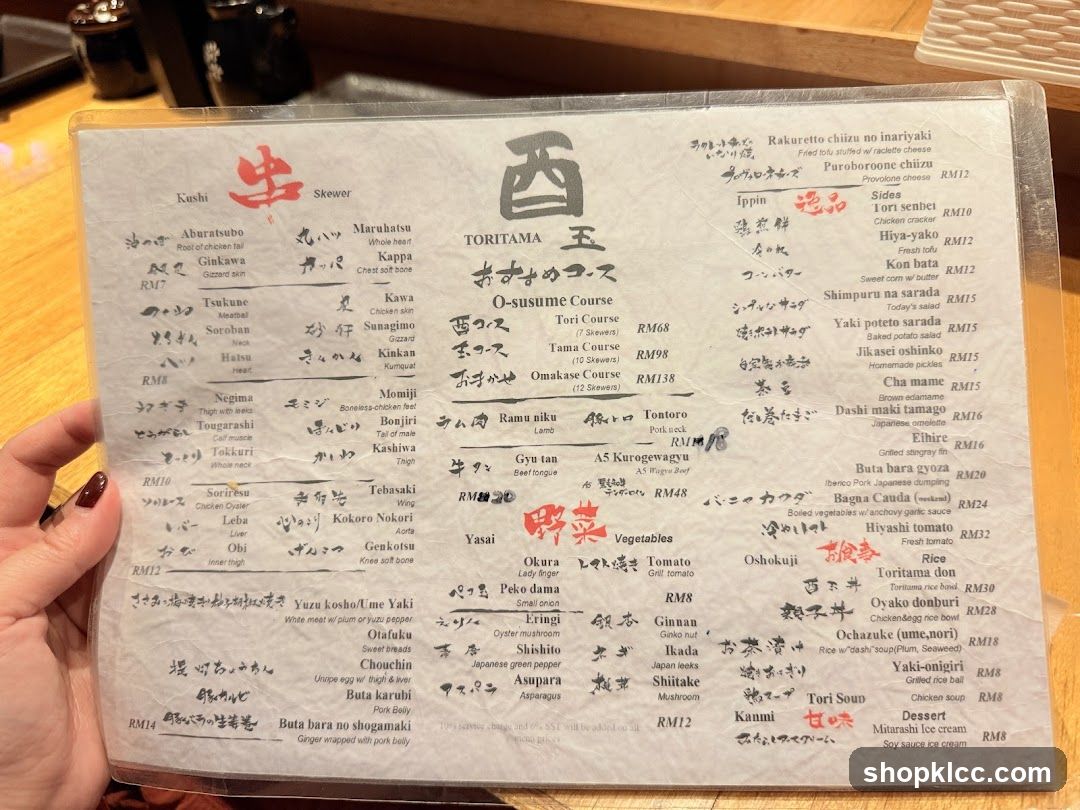 出
Kushi
Skewer
Aburatsubo
Root of chicken tail
Ginkawa
Gizzard skin
RM7
Maruhatsu
Whole heart
カッパ
Kappa
Chest soft bone
つくね
Tsukune
Meatball
Soroban
Neck
ハツ
Hatsu
Heart
RM8
皮
Kawa
Chicken skin
砂肝
Sunagimo
Gizzard
きんかん
Kinkan
Kumquat
ねぎま
Negima
Thigh with leeks
とうがらし
Tougarashi
Calf muscle
Tokkuri
Whole neck
RM10
モミジ
Momiji
Boneless-chicken feet
ぼんじり
Bonjiri
Tail of male
かしわ
Kashiwa
Thigh
ソリレース
Soriresu
Chicken Oyster
レバー
Leba
Liver
おび
Obi
Inner thigh
RM12
手羽先
Tebasaki
Wing
心のこり
Kokoro Nokori
Aorta
げんこつ
Genkotsu
Knee soft bone
Yuzu kosho/Ume Yaki
White meat w/ plum or yuzu pepper
Otafuku
Sweet breads
提灯ちょうちん
Chouchin
Unripe egg w/ thigh & liver
豚カルビ
Buta karubi
Pork Belly
RM14
豚バラの生姜巻
Buta bara no shogamaki
Ginger wrapped with pork belly
酉
TORITAMA
玉
おすすめコース
O-susume Course
酉コース
Tori Course
(7 Skewers)
RM68
玉コース
Tama Course
(10 Skewers)
RM98
おまかせ
Omakase Course
(12 Skewers)
RM138
ラム肉
Ramu niku
Lamb
豚トロ
Tontoro
Pork neck
RM18
牛タン
Gyu tan
Beef tongue
RM20
A5 Kurogewagyu
A5 Wagyu Beef
RM48
野菜
Yasai
Vegetables
Okura
Lady finger
トマト焼き
Tomato
Grill tomato
ペコ玉
Peko dama
Small onion
RM8
エリンギ
Eringi
Oyster mushroom
銀杏
Ginnan
Ginko nut
Shishito
Japanese green pepper
ネギ
Ikada
Japan leeks
アスパラ
Asupara
Asparagus
椎茸
Shiitake
Mushroom
RM12
10% service charge and 6% SST will be added on all menu prices
ラクレットチーズのいなり焼
Rakuretto chiizu no inariyaki
Fried tofu stuffed w/ raclette cheese
プロヴォローネチーズ
Puroboroone chiizu
Provolone cheese
RM12
Ippin
逸品
Sides
鶏煎餅
Tori senbei
Chicken cracker
RM10
冷奴
Hiya-yako
Fresh tofu
RM12
コーンバター
Kon bata
Sweet corn w/ butter
RM12
シンプルなサラダ
Shimpuru na sarada
Today's salad
RM15
焼きポテトサラダ
Yaki poteto sarada
Baked potato salad
RM15
自家製お新香
Jikasei oshinko
Homemade pickles
RM15
茶豆
Cha mame
Brown edamame
RM15
だし巻たまご
Dashi maki tamago
Japanese omelette
RM16
Eihire
Grilled stingray fin
RM16
Buta bara gyoza
Iberico Pork Japanese dumpling
RM20
バーニャカウダ
Bagna Cauda (weekend)
Boiled vegetables w/ anchovy garlic sauce
RM24
冷やしトマト
Hiyashi tomato
Fresh tomato
RM32
Oshokuji
お食事
Rice
酉玉丼
Toritama don
Toritama rice bowl
RM30
親子丼
Oyako donburi
Chicken&egg rice bowl
RM28
お茶漬け
Ochazuke (ume,nori)
Rice w/"dashi"soup(Plum, Seaweed)
RM18
焼きおにぎり
Yaki-onigiri
Grilled rice ball
RM8
鶏スープ
Tori Soup
Chicken soup
RM8
Kanmi
甘味
Dessert
みたらしアイスクリーム
Mitarashi Ice cream
Soy sauce ice cream
RM8
shopklcc.com